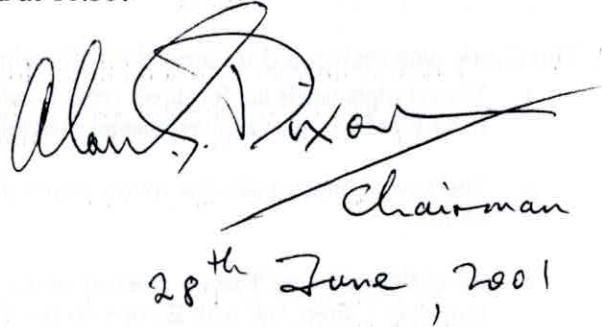 Alan S. Dixon
Chairman
28th June, 2001